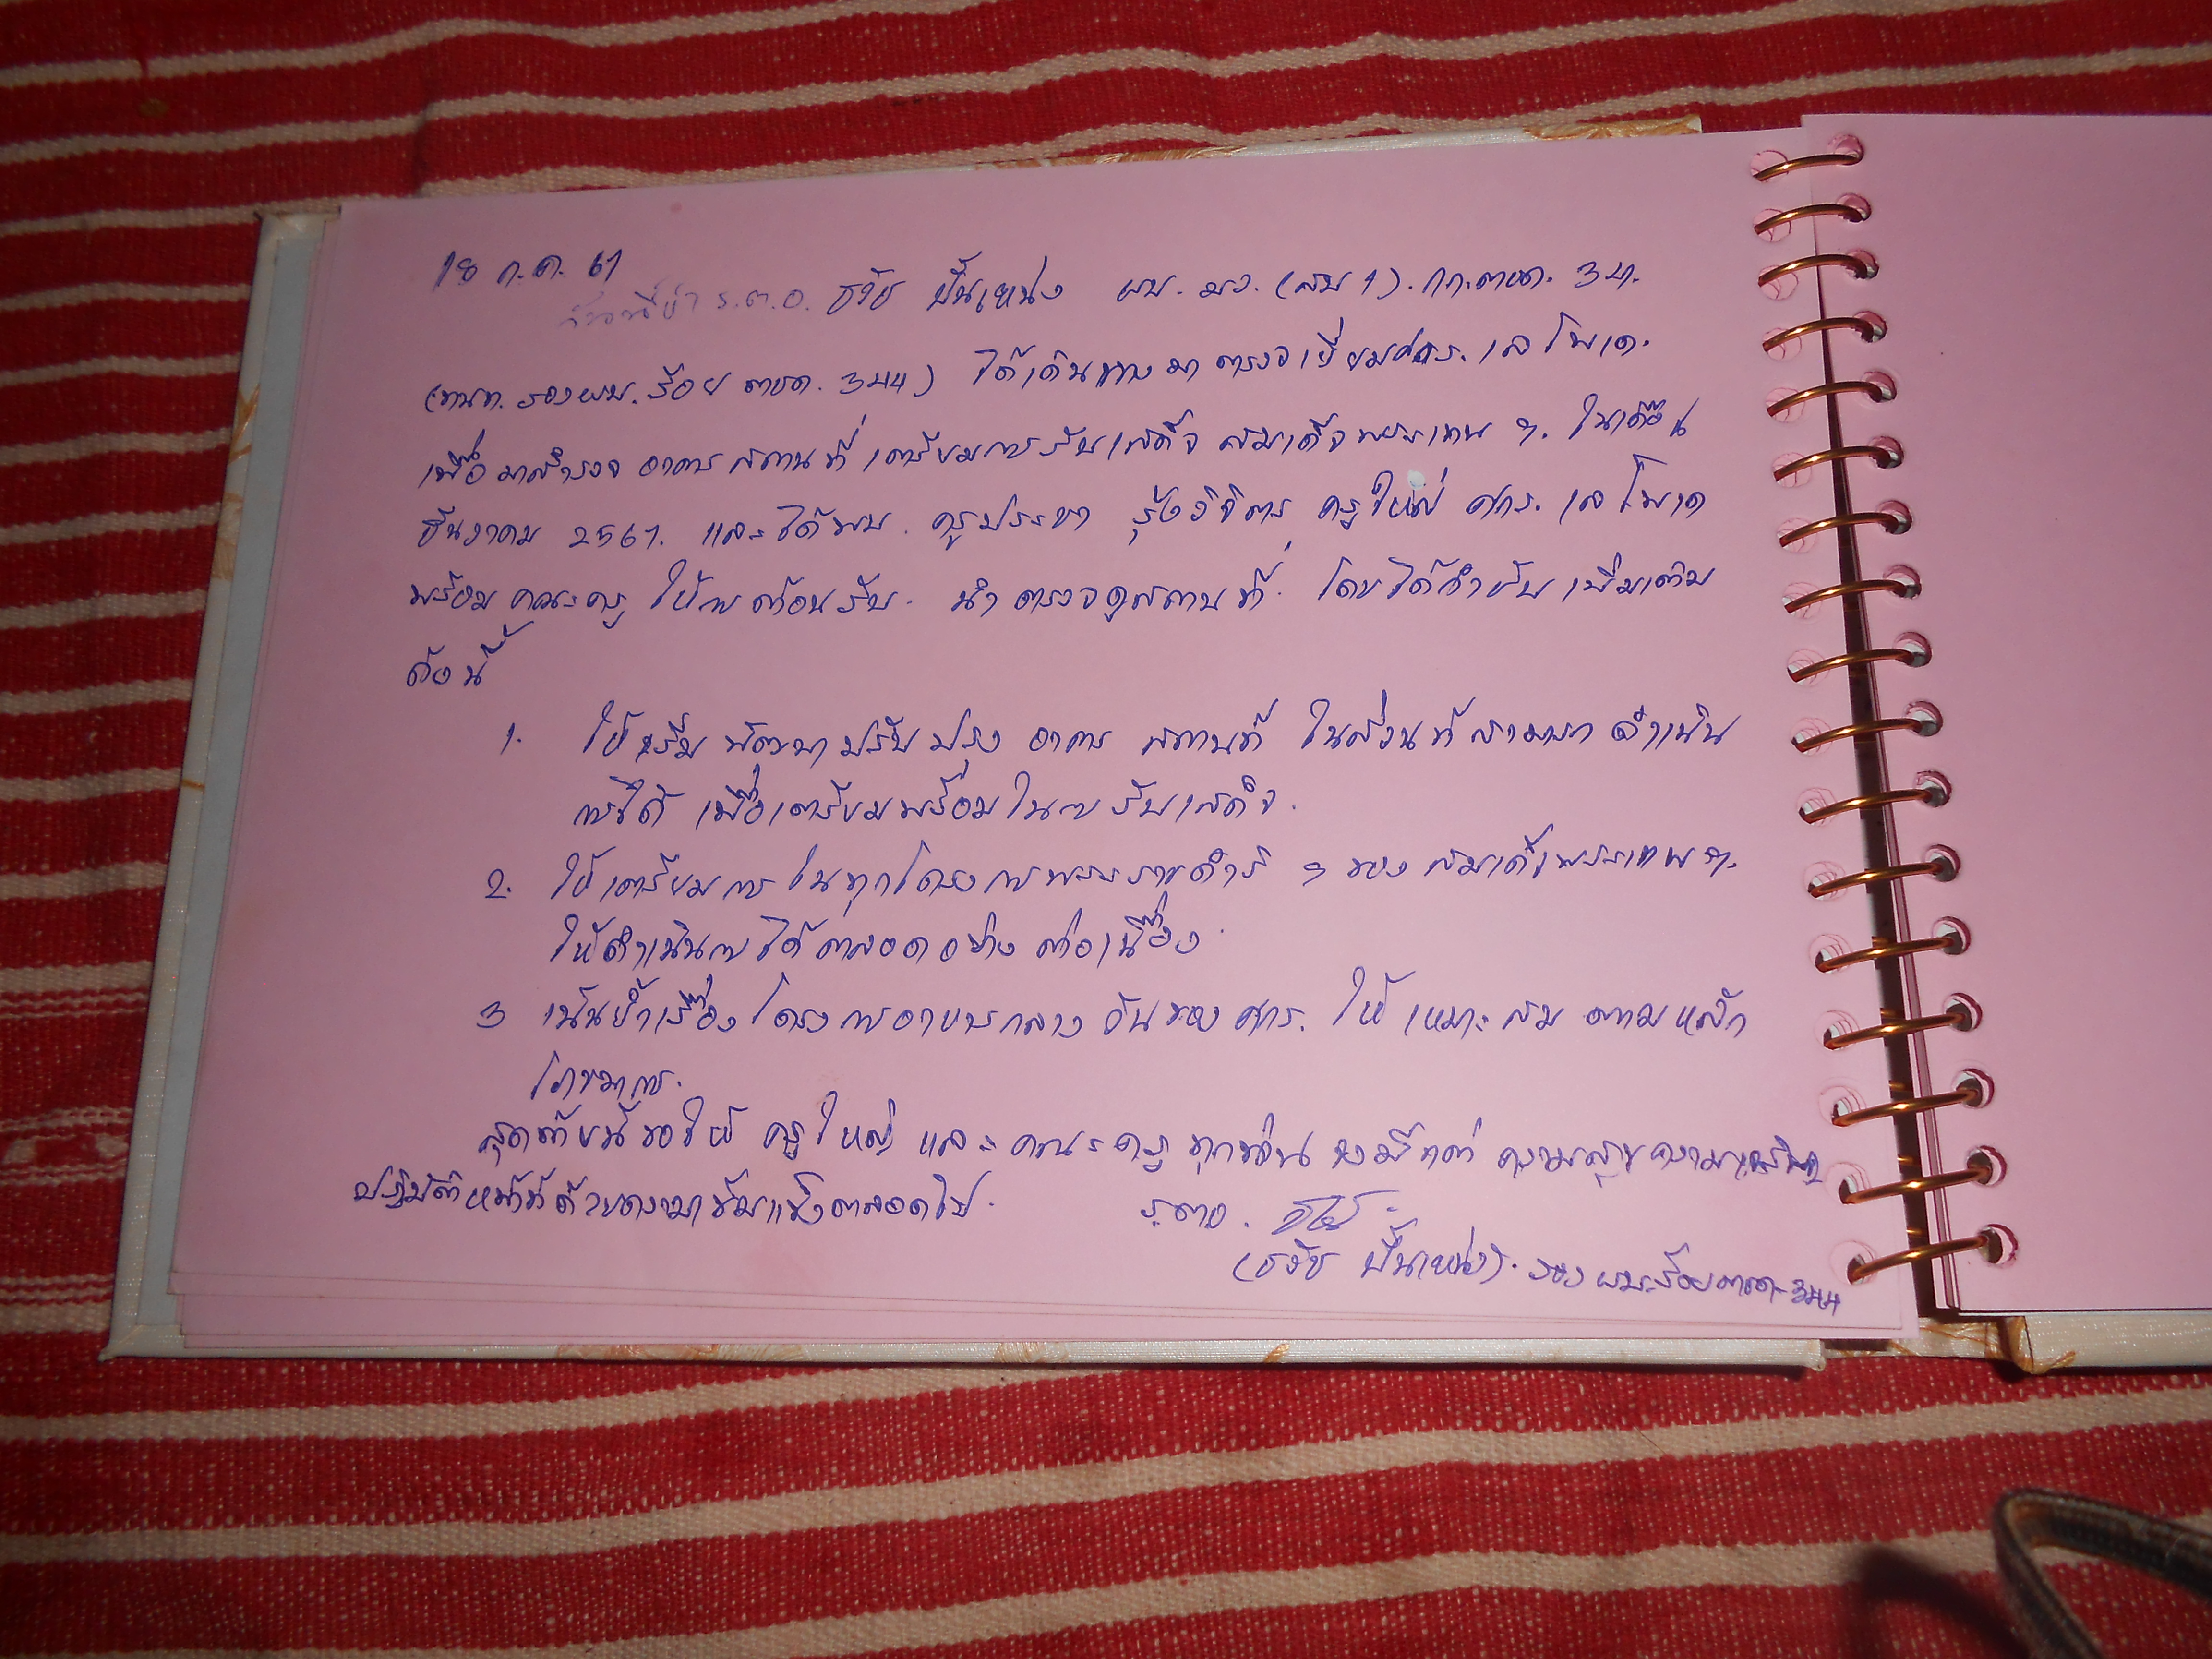 18 ก.ค. 61
วันนี้ข้า ร.ต.อ. ธวัช ปั้นเหน่ง ผบ.มว.(สบ 1).กก.ตชด. 34.
(ทนท. รองผบ.ร้อย ตชด. 344) ได้เดินทางมาตรวจเยี่ยมศกร. เลโพเด.
เพื่อมาสำรวจ อาคารสถานที่ เตรียมการรับเสด็จ สมเด็จพระเทพ ฯ. ในเดือน
ธันวาคม 2561. และได้พบ. ครูประชา รุ้งวิจิตร ครูใหญ่ ศกร. เลโพเด
พร้อม คณะครู ให้การต้อนรับ. นำตรวจดูสถานที่. โดยได้กำชับเพิ่มเติม
ดังนี้
1. ให้เริ่ม พัฒนาปรับปรุง อาคาร สถานที่ ในส่วนที่สามารถ ดำเนิน
การได้ เพื่อเตรียมพร้อมในการรับเสด็จ.
2. ให้เตรียมการในทุกโครงการพระราชดำริ ฯ ของ สมเด็จพระเทพ ฯ.
ให้ดำเนินการได้ตลอดอย่าง ต่อเนื่อง.
3 เน้นย้ำเรื่อง โครงการอาหารกลางวันของ ศกร. ให้เหมาะสม ตามหลัก
โภชนาการ.
สุดท้ายนี้ขอให้ ครูใหญ่ และ คณะครู ทุกท่าน จงมีแต่ ความสุขความเจริญ
ปฏิบัติหน้าที่ด้วยความเข้มแข็งตลอดไป. ร.ต.อ.
(ธวัช ปั้นเหน่ง). รอง ผบ.ร้อย ตชด. 344